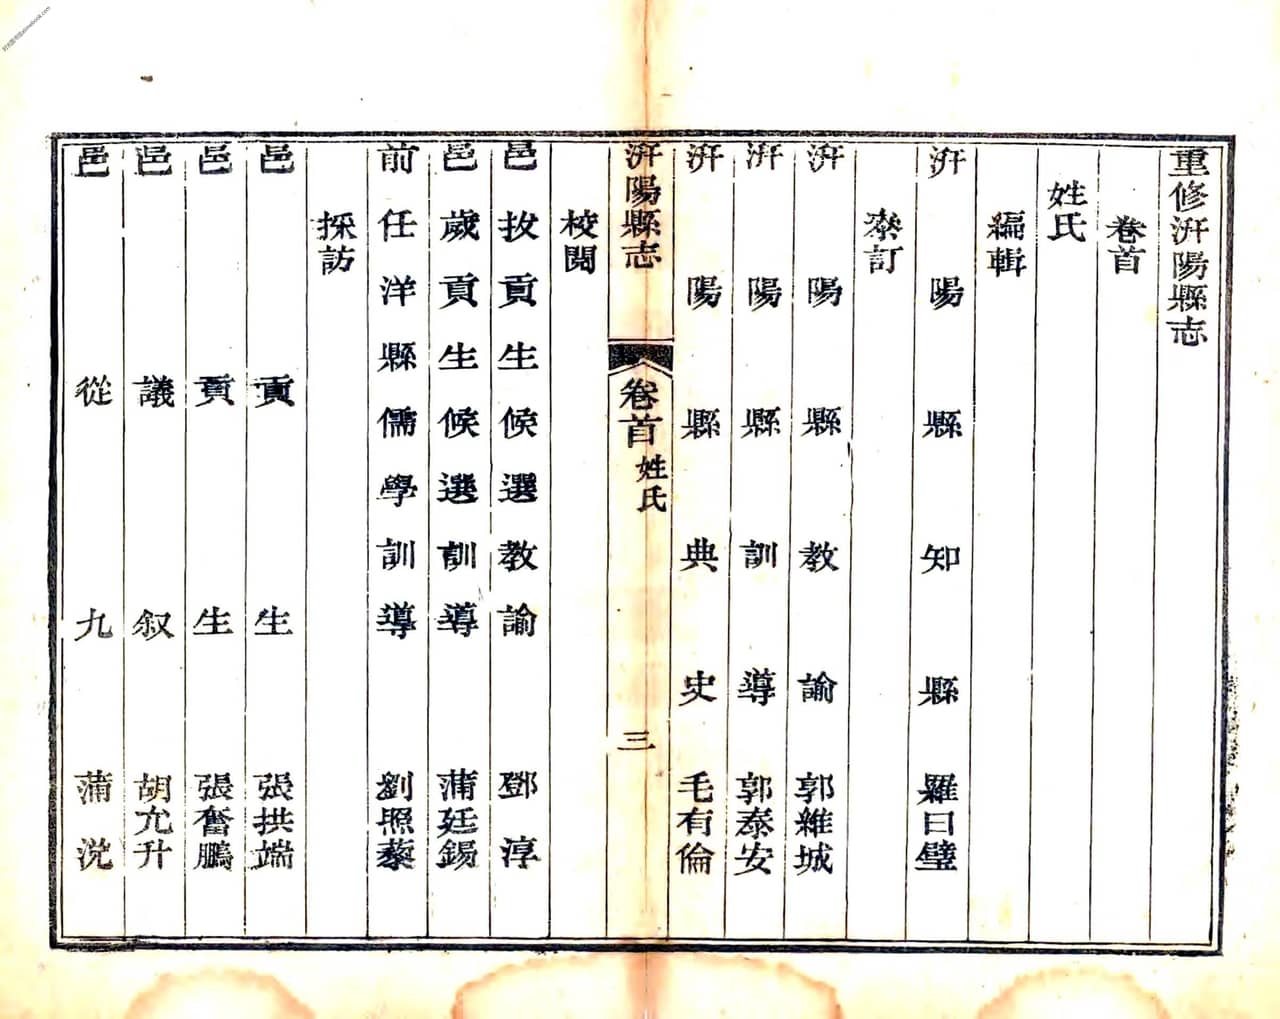 重修汧陽縣志
卷首
姓氏
編輯
汧陽縣知縣 羅曰璧
叅訂
汧陽縣教諭 郭維城
汧陽縣訓導 郭泰安
汧陽縣典史 毛有倫
汧陽縣志 卷首 姓氏 三
校閱
邑拔貢生候選教諭 鄧淳
邑歲貢生候選訓導 蒲廷錫
前任洋縣儒學訓導 劉照藜
採訪
邑貢生 張拱端
邑貢生 張奮鵬
邑議叙 胡允升
邑從九 蒲滉